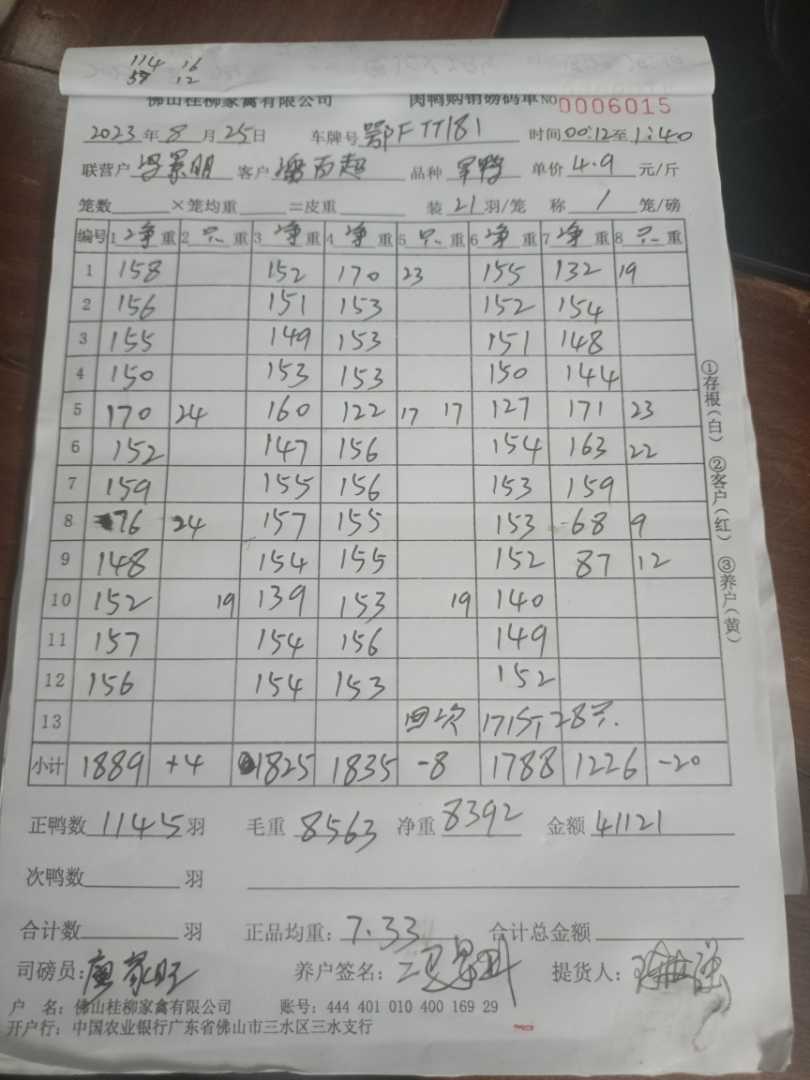 114 16
57 12
佛山桂柳家禽有限公司 肉鸭购销磅码单 NO 0006015
2023 年 8 月 25 日 车牌号 鄂FTT181 时间 00:12 至 1:40
联营户 冯景明 客户 潘百超 品种 军鸭 单价 4.9 元/斤
笼数 ×笼均重 =皮重 装 21 羽/笼 称 1 笼/磅
编号 1 净 重 2 只 重 3 净 重 4 净 重 5 只 重 6 净 重 7 净 重 8 只 重
1 158 152 170 23 155 132 19
2 156 151 153 152 154
3 155 149 153 151 148
4 150 153 153 150 144
5 170 24 160 122 17 17 127 171 23
6 152 147 156 154 163 22
7 159 155 156 153 159
8 176 24 157 155 153 68 9
9 148 154 155 152 87 12
10 152 19 139 153 19 140
11 157 154 156 149
12 156 154 153 152
13 回次 171斤 28只.
小计 1889 +4 1825 1835 -8 1788 1226 -20
正鸭数 1145 羽 毛重 8563 净重 8392 金额 41121
次鸭数 羽
合计数 羽 正品均重: 7.33 合计总金额
司磅员: 养户签名: 提货人:
户 名: 佛山桂柳家禽有限公司 账号: 444 401 010 400 169 29
开户行: 中国农业银行广东省佛山市三水区三水支行
①存根(白) ②客户(红) ③养户(黄)